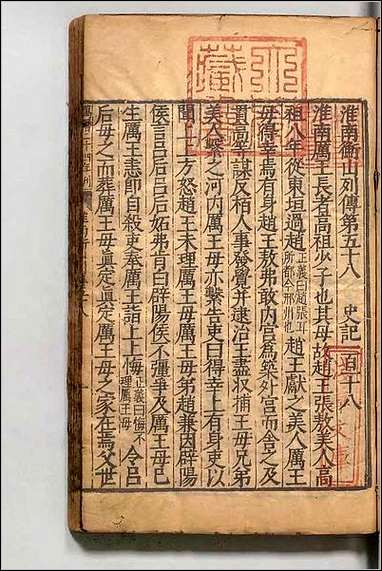 淮南衡山列傳第五十八　史記一百十八
淮南厲王長者高祖少子也其母故趙王張敖美人高
祖八年從東垣過趙正義曰趙張耳所都今邢州也趙王獻之美人厲王
母得幸焉有身趙王敖弗敢內宮為築外宮而舍之及
貫高等謀反栢人事發覺并逮治王盡収捕王母兄弟
美人繫之河内厲王母亦繫告吏曰得幸上有身吏以
聞上上方怒趙王未理厲王母厲王母弟趙兼因辟陽
侯言呂后呂后妬弗肯白辟陽侯不彊爭及厲王母已
生厲王恚即自殺吏奉厲王詣上上悔正義曰悔不理厲王母令呂
后母之而葬厲王母真定真定厲王母之家在焉父世